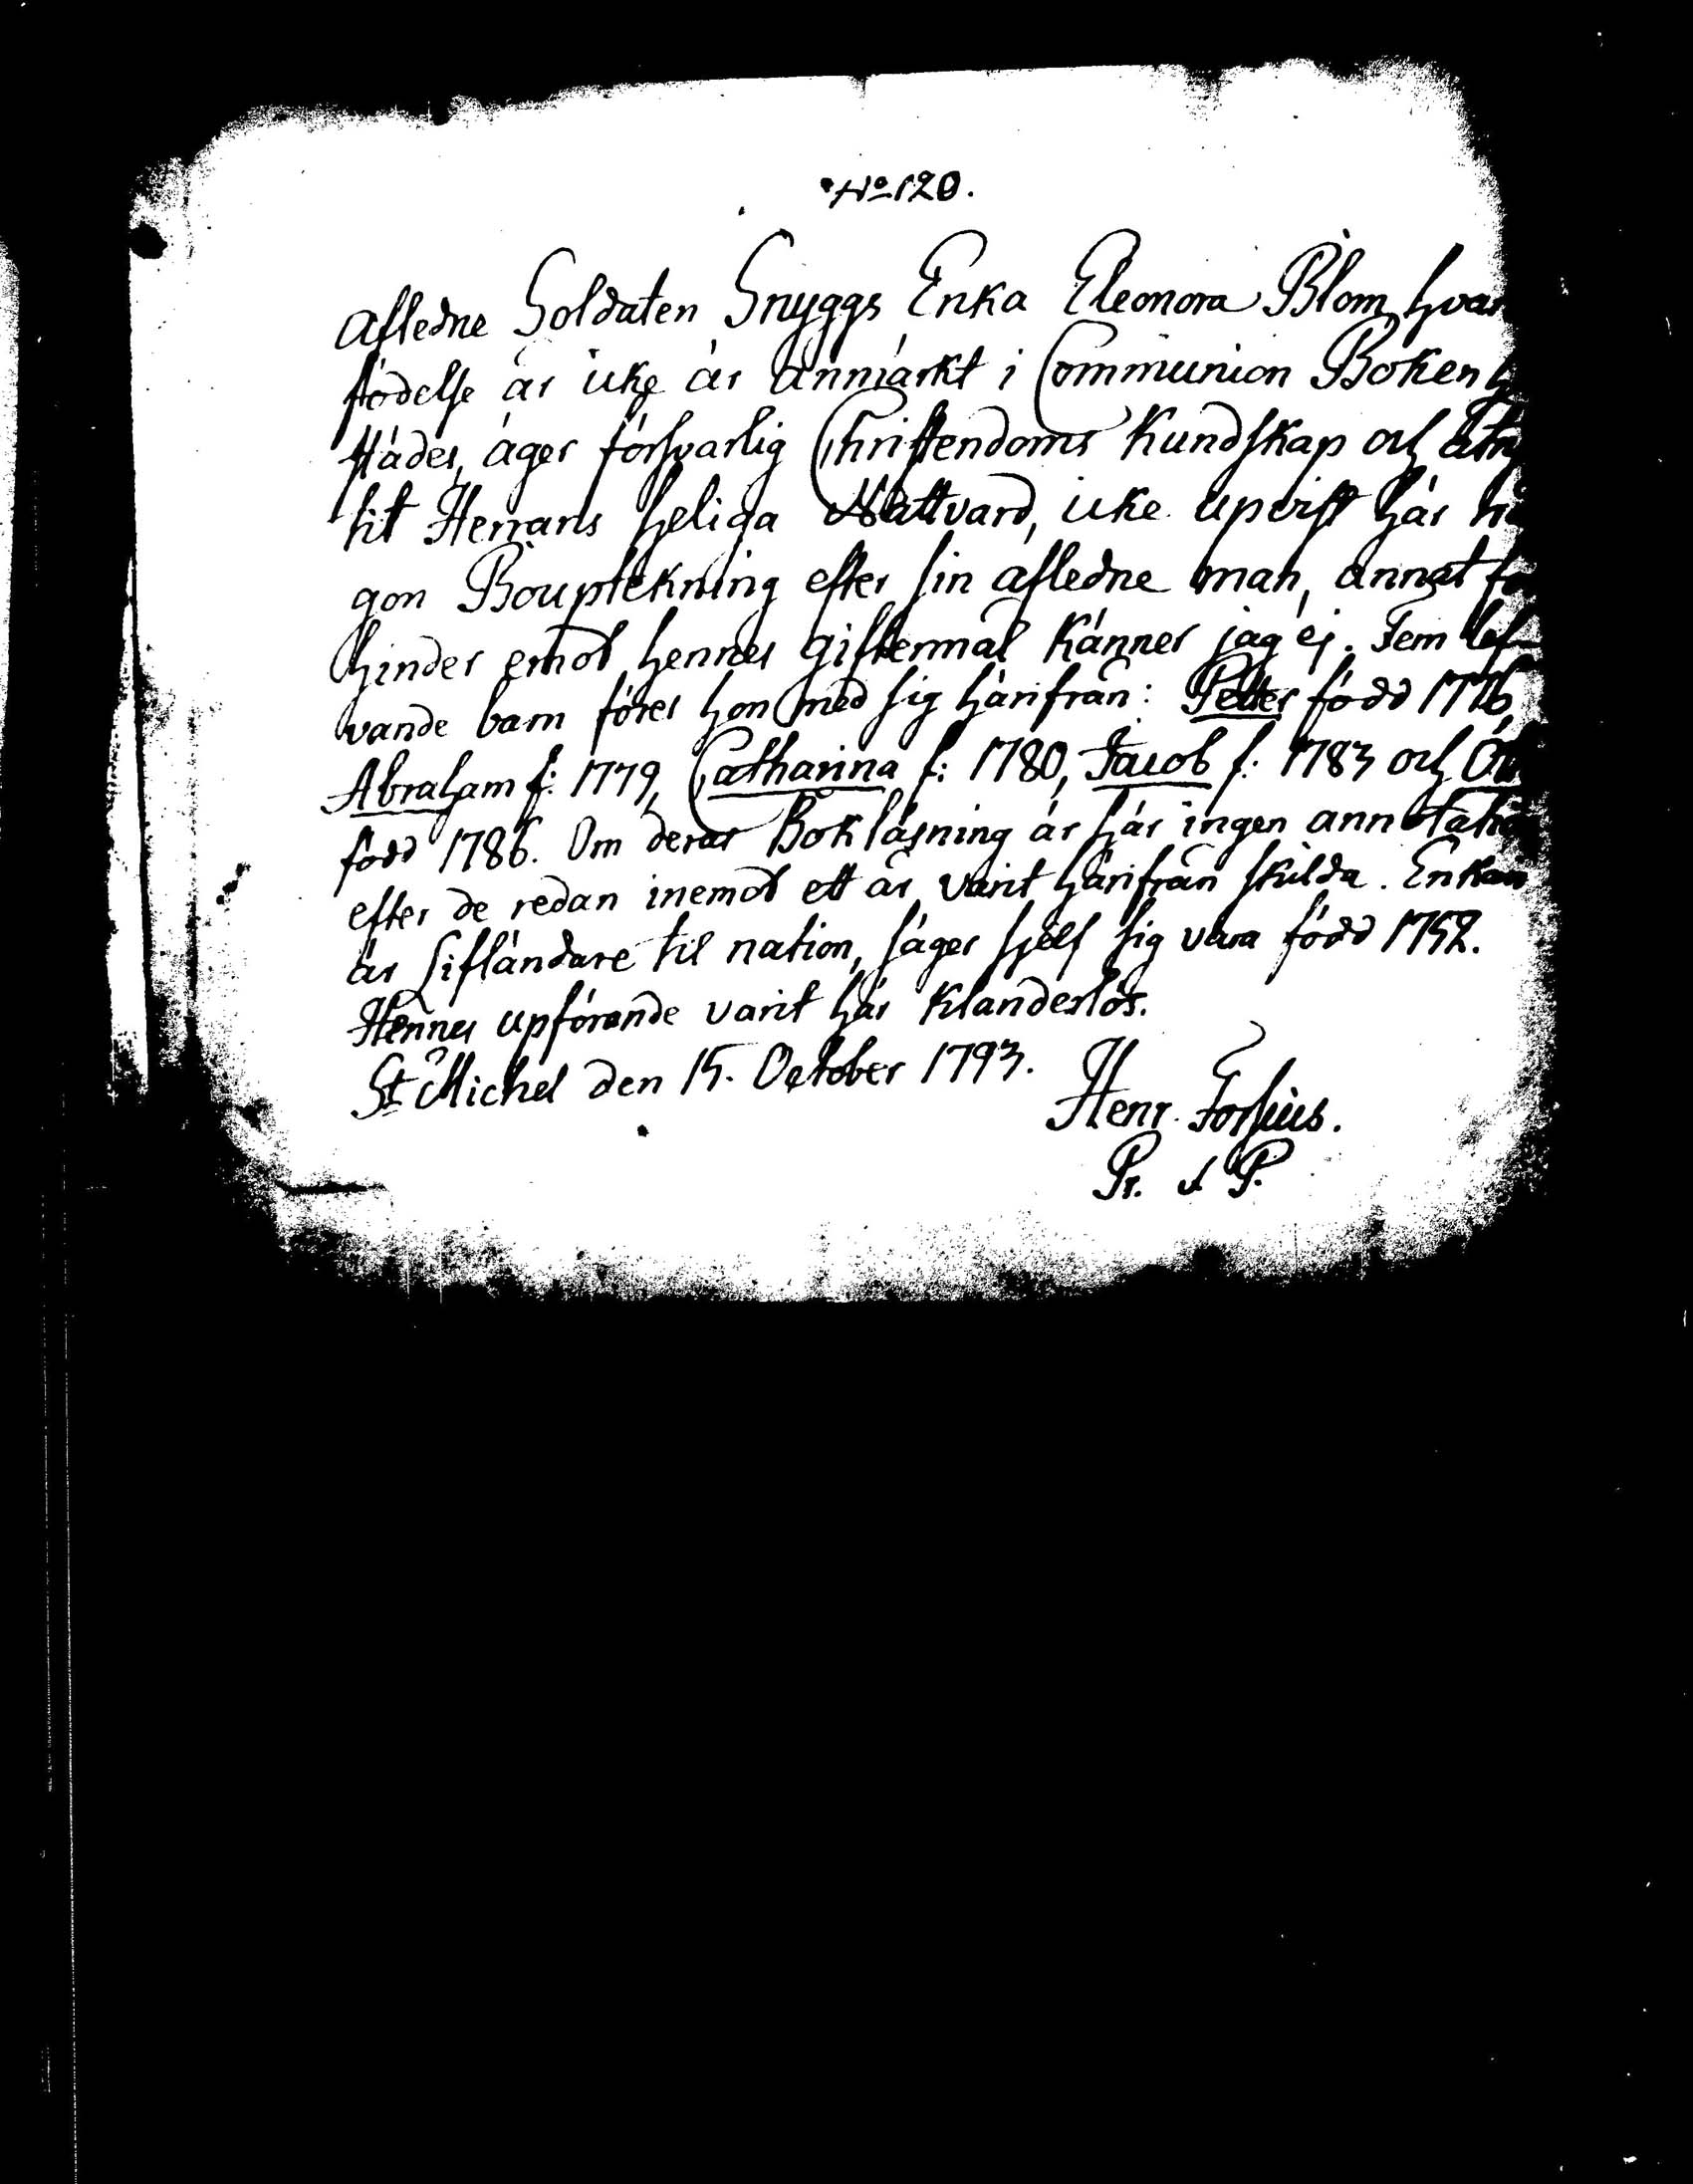 No 120.
Afledne Soldaten Snyggs Enka Eleonora Blom, hvar
födelse år icke är anmärkt i Communion Boken
städes, äger försvarlig Christendoms Kundskap och
sit Herrans heliga Nattvard, icke upvist här
gon Bouptekning efter sin afledne man, annat
hinder emot hennes giftermål känner jag ej. Fem lef-
vande barn förer hon med sig härifrån: Petter född 1776,
Abraham f: 1779, Catharina f: 1780, Jacob f: 1783 och
född 1786. Om deras Bokläsning är här ingen annotatio
efter de redan inemot ett år varit härifrån skilda. Enkan
är Lifländare til nation, säger sjelf sig vara född 1752.
Hennes upförande varit här klanderlös.
St Michel den 15. October 1793.
Henr. Forsius.
Pr. & P.